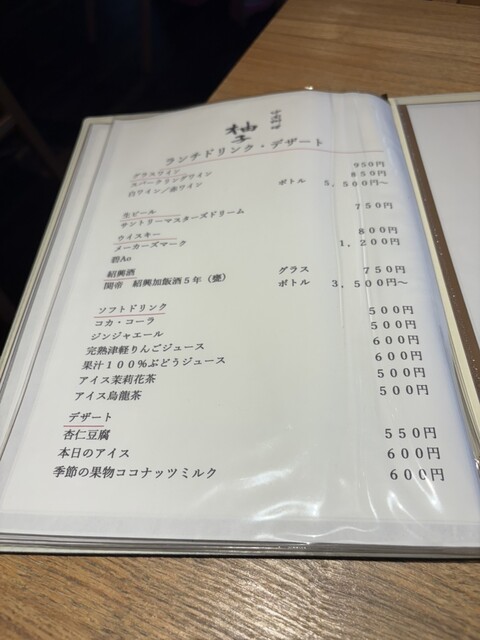 柚子
ランチドリンク・デザート
グラスワイン
スパークリングワイン 950円
白ワイン／赤ワイン 850円
ボトル 5,500円～
生ビール
サントリーマスターズドリーム 750円
ウイスキー
メーカーズマーク 800円
碧Ao 1,200円
紹興酒
関帝 紹興加飯酒5年（甕） グラス 750円
ボトル 3,500円～
ソフトドリンク
コカ・コーラ 500円
ジンジャエール 500円
完熟津軽りんごジュース 600円
果汁100％ぶどうジュース 600円
アイス茉莉花茶 500円
アイス烏龍茶 500円
デザート
杏仁豆腐 550円
本日のアイス 600円
季節の果物ココナッツミルク 600円